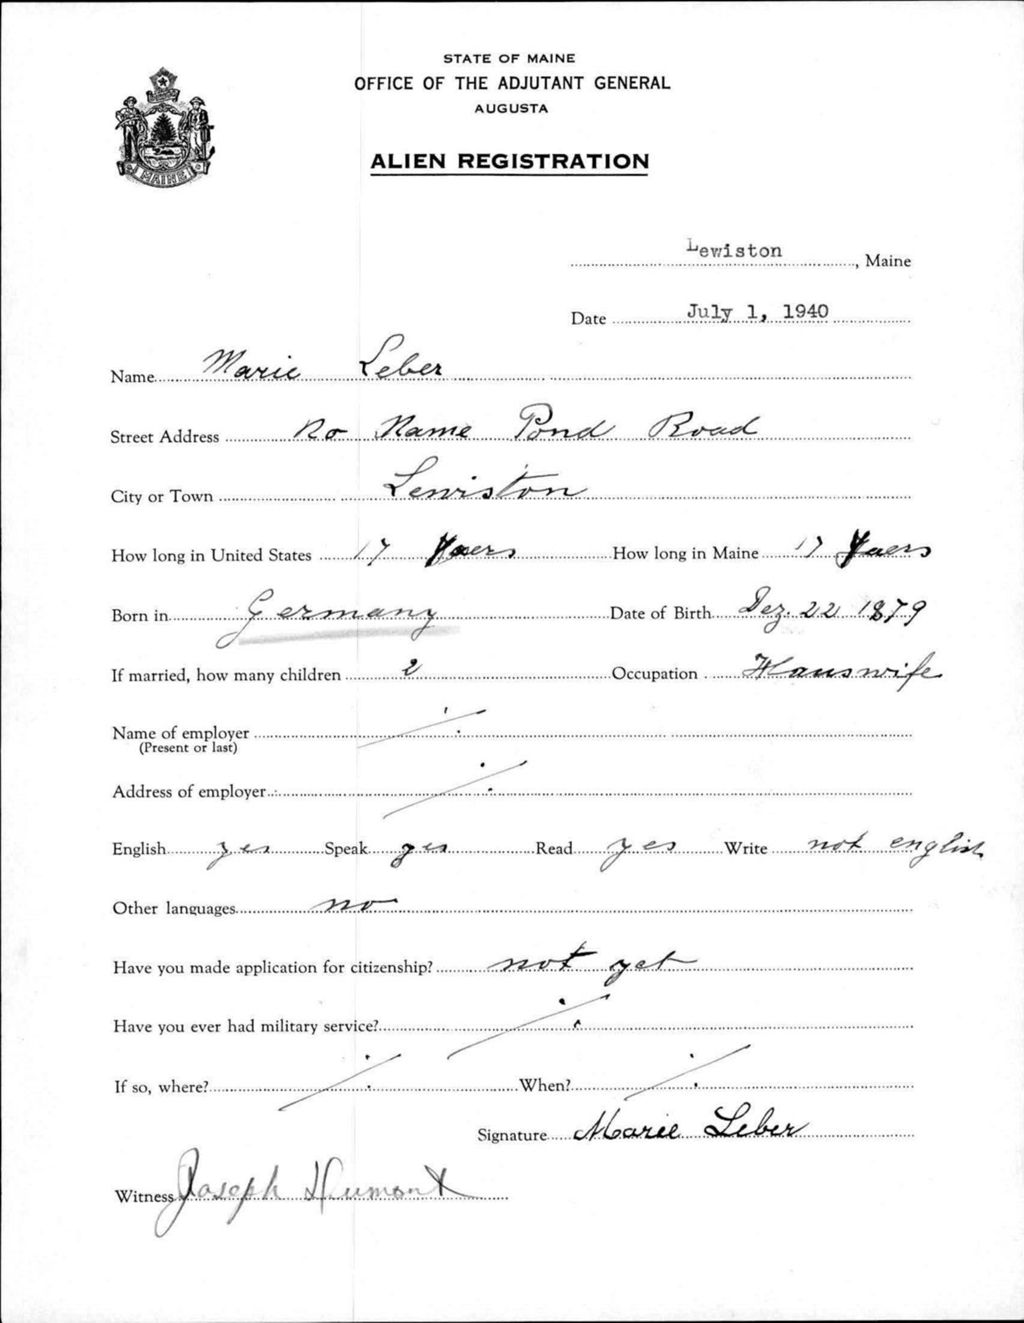 STATE OF MAINE
OFFICE OF THE ADJUTANT GENERAL
AUGUSTA
ALIEN REGISTRATION
MAINE
Lewiston, Maine
Date July 1, 1940
Name Marie Leber
Street Address No Name Pond Road
City or Town Lewiston
How long in United States 17 Yaers How long in Maine 17 Yaers
Born in Germany Date of Birth Dez. 22 1879
If married, how many children 2 Occupation Hauswife
Name of employer
(Present or last)
Address of employer
English yes Speak yes Read yes Write not english
Other languages no
Have you made application for citizenship? not yet
Have you ever had military service?
If so, where? When?
Signature Marie Leber
Witness Joseph Dumont